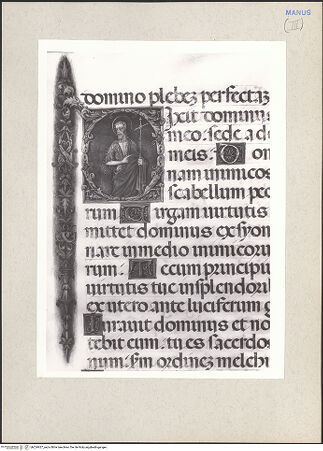 MANUS
(III)
domino plebez perfectaz
Dixit dominus
meo: sede a de
meis. Don
nam inimicos
scabellum ped
rum Virgam virtutis
mittet dominus ex syon
nare in medio inimicoru
rum. Tecum principiu
virtutis tue in splendorib
ex utero ante luciferum g
Iuravit dominus et no
tebit eum: tu es sacerdos
num. sm ordinez melchi